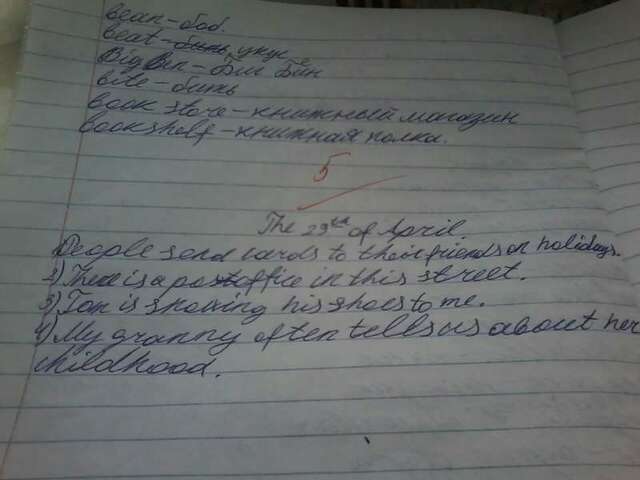 bean-боб.
beat-бить укус
Big Ben-Биг Бен
bite-бить
book store-книжный магазин
bookshelf-книжная полка.
5
The 29th of April.
People send cards to their friends on holidays.
2) There is a postoffice in this street.
3) Tom is showing his shoes to me.
4) My granny often tells us about her
childhood.